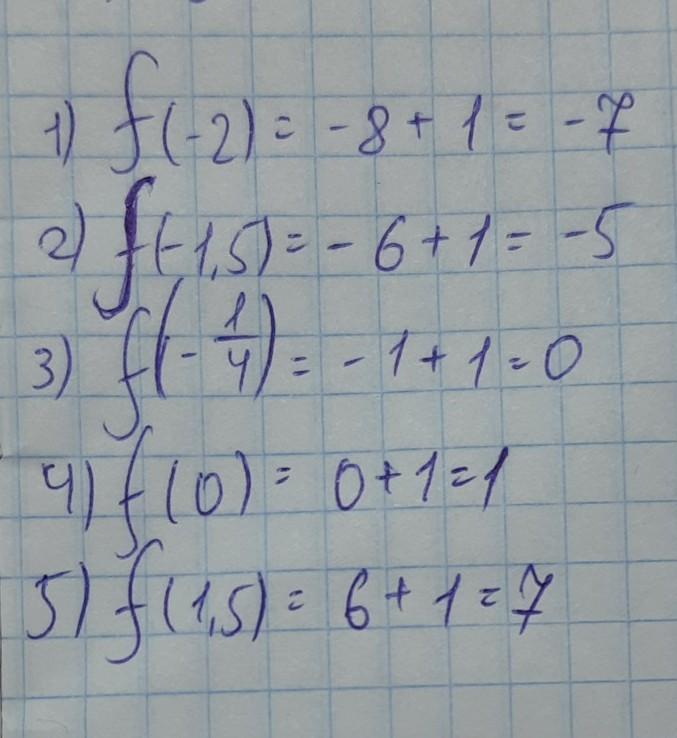 1) f(-2) = -8 + 1 = -7
2) f(-1,5) = - 6 + 1 = -5
3) f(-1/4) = - 1 + 1 = 0
4) f(0) = 0 + 1 = 1
5) f(1,5) = 6 + 1 = 7